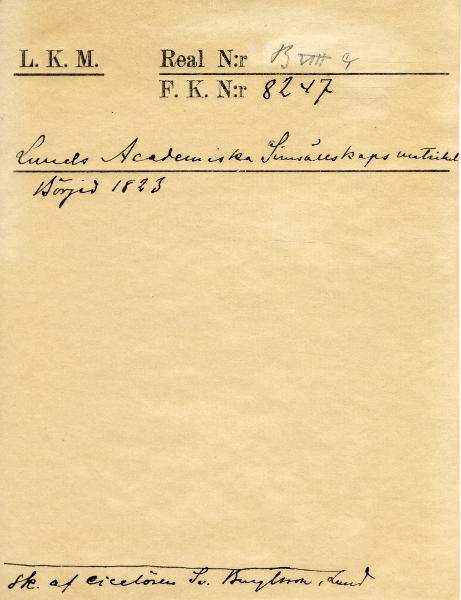 L. K. M. Real N:r B VIII g
F. K. N:r 8247
Lunds Academiska Simsällskaps matrikel
Börjid 1823
sk. af ciselören Sv. Bengtsson, Lund